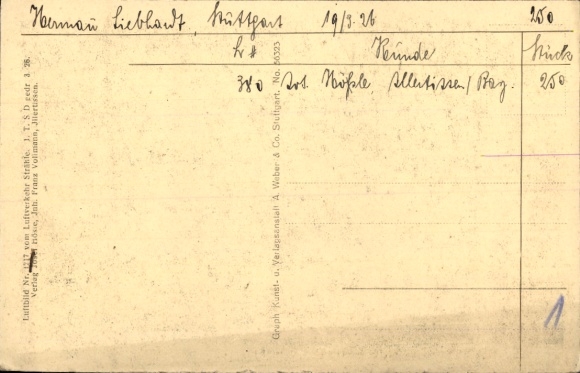 Hermann Liebhardt, Stuttgart 19/3.26 250
Kunde Stück
380 Jos. Rößle, Illertissen/Bay. 250
Luftbild Nr. 1217 vom Luftverkehr Strähle. I. T. S D gedr 3. 26.
Verlag Josef Rössle, Joh. Franz Vollmann, Illertissen.
Graph Kunst- u. Verlagsanstalt A. Weber & Co. Stuttgart. No. 56323
1